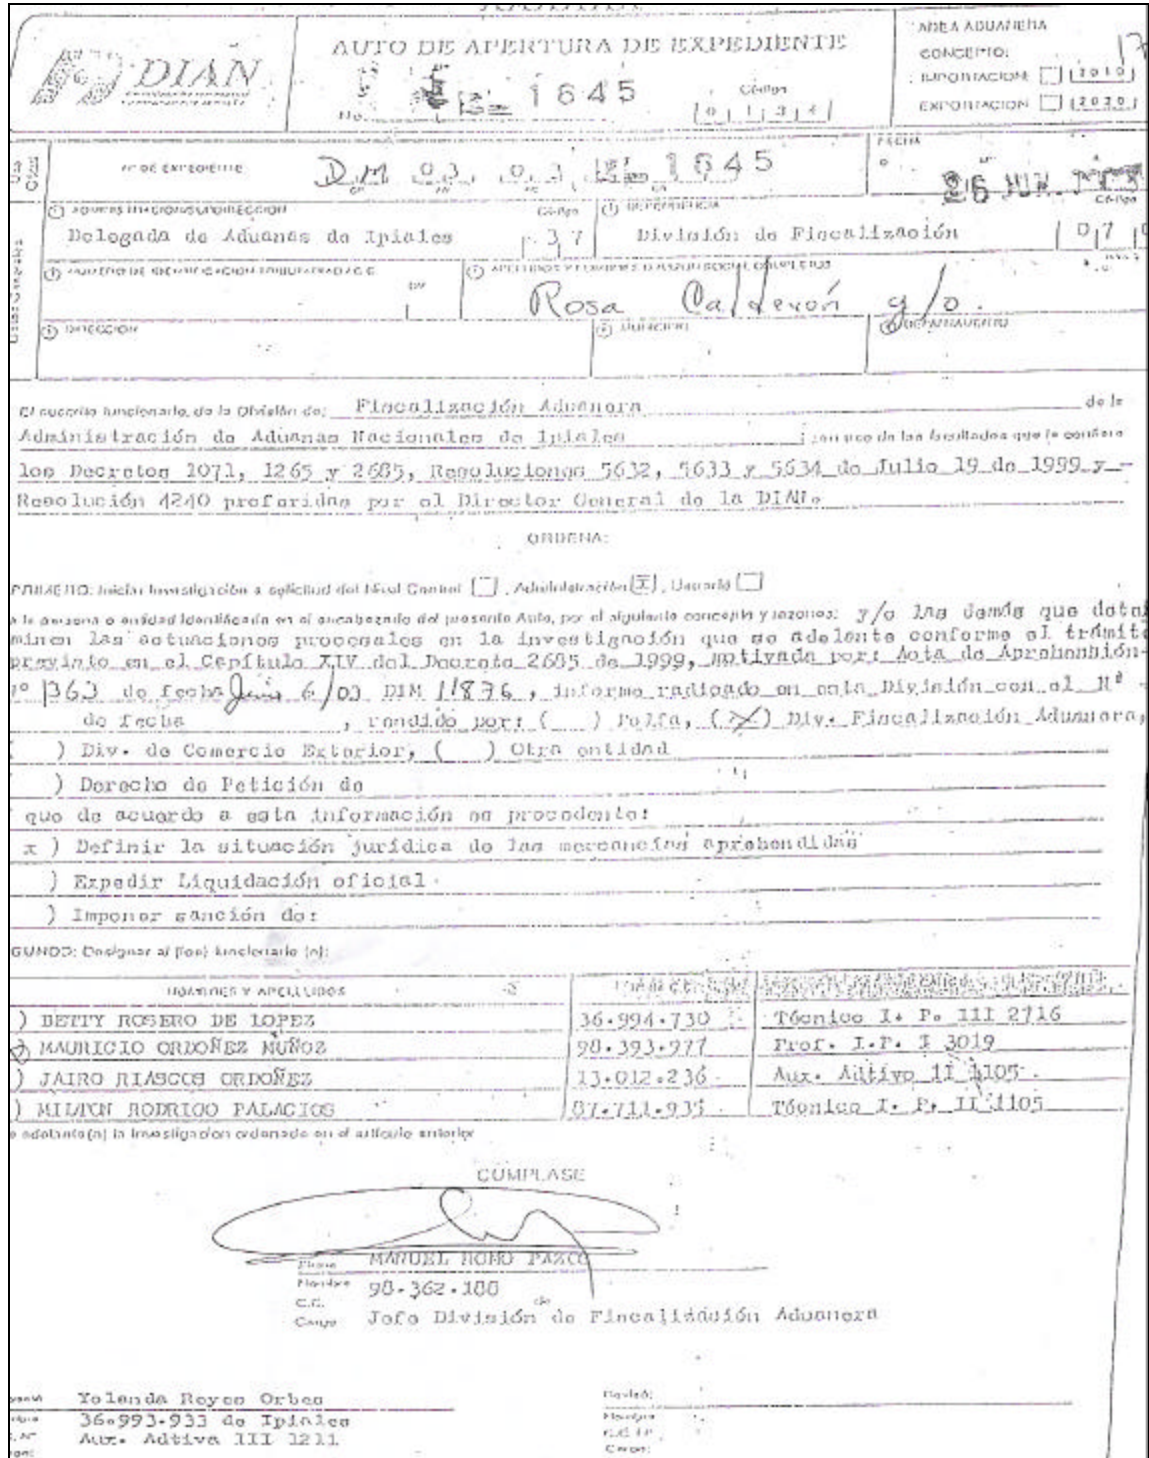 DIAN
AUTO DE APERTURA DE EXPEDIENTE
No. 1645
Código
0 1 3 4
AREA ADUANERA
CONCEPTO: 17
IMPORTACION 2010
EXPORTACION 2020
Nº DE EXPEDIENTE DM 03 03 1645
FECHA
26 JUN
Código
Delegada de Aduanas de Ipiales
Código
37
DEPENDENCIA
División de Fiscalización
07
APELLIDOS Y NOMBRES O RAZON SOCIAL COMPLETOS
Rosa Calderón y/o.
DIRECCION
MUNICIPIO
DEPARTAMENTO
El suscrito funcionario, de la División de: Fiscalización Aduanera de la
Administración de Aduanas Nacionales de Ipiales ; en uso de las facultades que le confiere
los Decretos 1071, 1265 y 2685, Resoluciones 5632, 5633 y 5634 de Julio 19 de 1999 y -
Resolución 4240 proferidas por el Director General de la DIAN.
ORDENA:
PRIMERO: Iniciar Investigación a solicitud del Nivel Central , Administración X , Usuario
a la persona o entidad identificada en el encabezado del presente Auto, por el siguiente concepto y razones: y/o las demás que deter
minen las actuaciones procesales en la investigación que se adelente conforme el trámite
previsto en el Capítulo XIV del Decreto 2685 de 1999, motivada por: Acta de Aprehensión-
Nº 1363 de fecha Junio 6/03 DIM 11876, informe radicado en esta División con el Nº -
de fecha , rendido por: ( ) Polfa, (X) Div. Fiscalización Aduanera,
) Div. de Comercio Exterior, ( ) Otra entidad
) Derecho de Petición de
que de acuerdo a esta información es procedente:
x ) Definir la situación jurídica de las mercancías aprehendidas
) Expedir Liquidación oficial.
) Imponer sanción de:
GUNDO: Designar al (los) funcionario (s):
NOMBRES Y APELLIDOS
) BETTY ROSERO DE LOPEZ 36.994.730 Técnico I. P. III 2716
) MAURICIO ORDOÑEZ MUÑOZ 98.393.977 Prof. I.P. I 3019
) JAIRO RIASCOS ORDOÑEZ 13.012.236 Aux. Adtivo II 1105
) MILTON RODRIGO PALACIOS 87.711.935 Técnico I. P. II 1105
e adelante(n) la investigacion ordenado en el artículo anterior
CUMPLASE
Firma
Nombre MANUEL ROMO PAZCO
C.C. 98.362.188 de
Cargo Jefe División de Fiscalización Aduanera
Yolanda Reyes Orbea
36.993.933 de Ipiales
Aux. Adtiva III 1211
Revisó:
Nombre
Cargo: